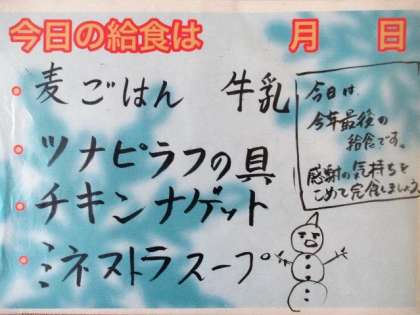 今日の給食は　月　日
・麦ごはん　牛乳
・ツナピラフの具
・チキンナゲット
・ミネストラスープ
今日は、
今年最後の
給食です。
感謝の気持ちを
こめて完食しましょう